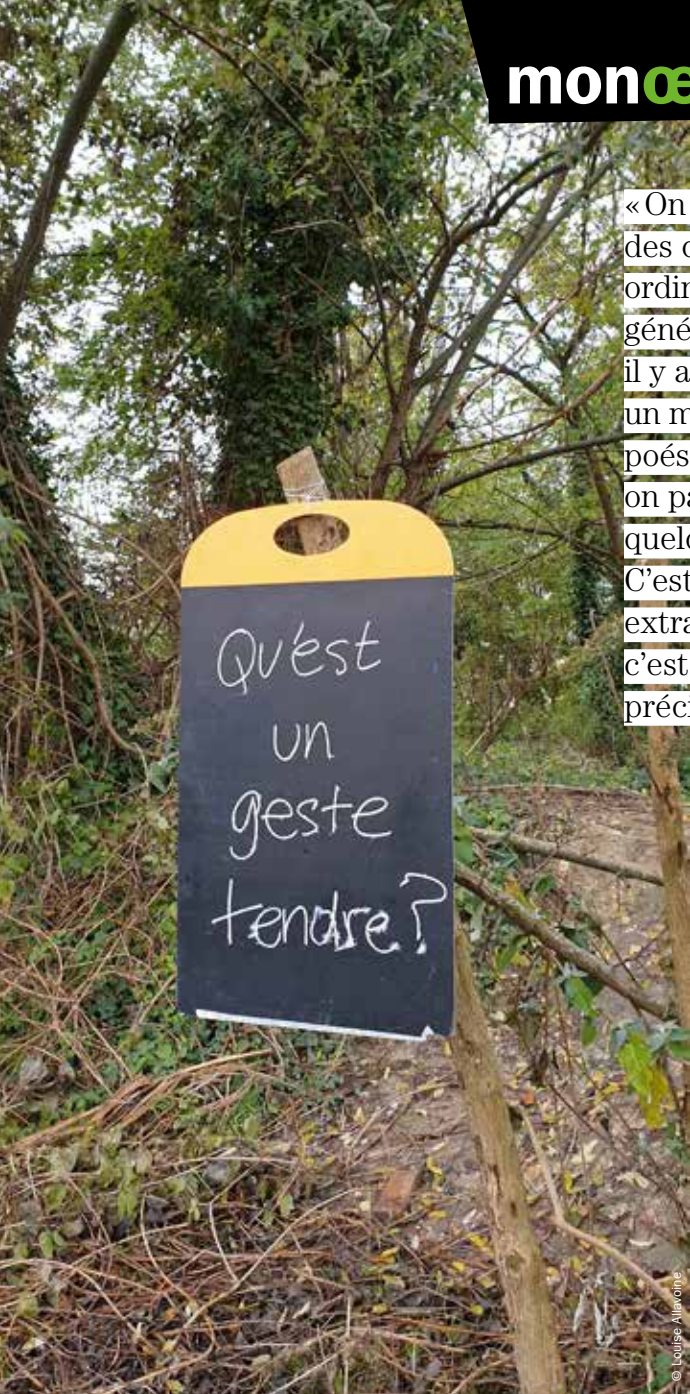 monœ
«On
des
ordi
géné
il y a
un m
poés
on pa
quel
C’est
extra
c’est
préc
Qu'est
un
geste
tendre?
© Louise Allavoine